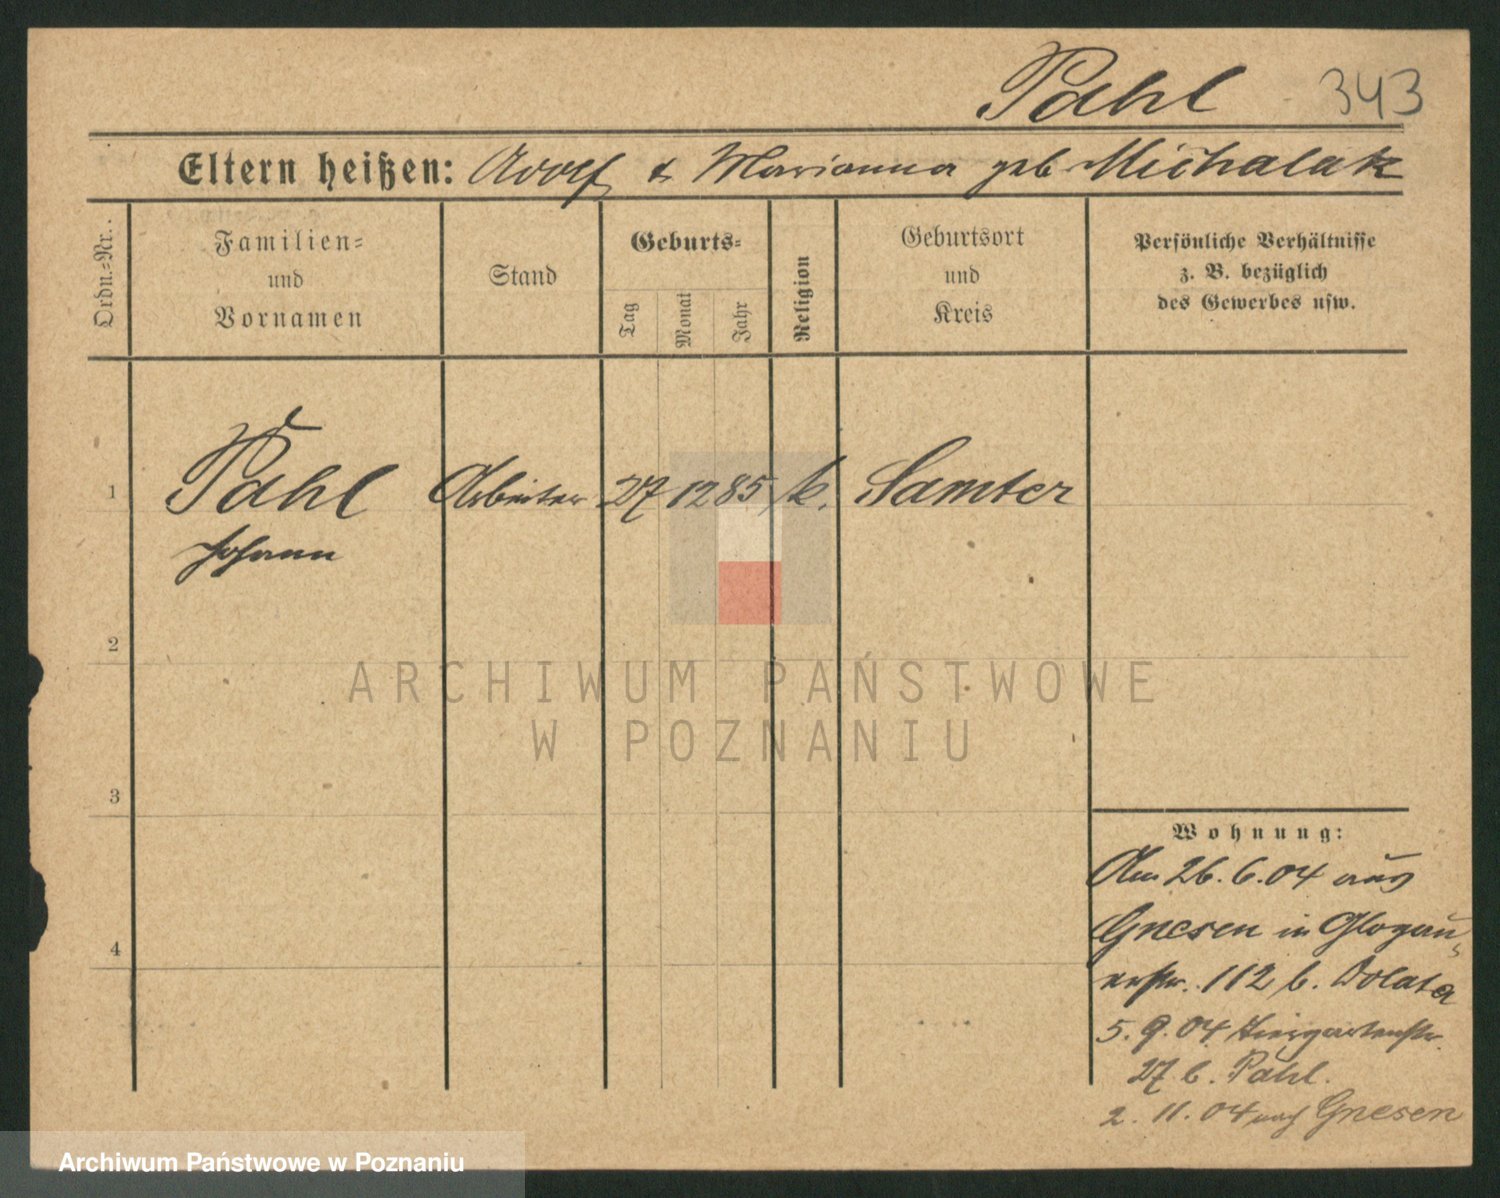 Pahl 343
Eltern heißen: Adolf & Marianna geb Michalak
Ordn.=Nr.
Familien=
und
Vornamen
Stand
Geburts=
Tag
Monat
Jahr
Religion
Geburtsort
und
Kreis
Persönliche Verhältnisse
z. B. bezüglich
des Gewerbes usw.
1 Pahl Arbeiter 27 12 85 k. Samter
Johann
2
ARCHIWUM PAŃSTWOWE
W POZNANIU
3
Wohnung:
Am 26.6.04 aus
Gnesen in Glogau=
4
erstr. 112 b. Dolata
5.9.04 Tiergartenstr.
27 b. Pahl.
2. 11. 04 nach Gnesen
Archiwum Państwowe w Poznaniu